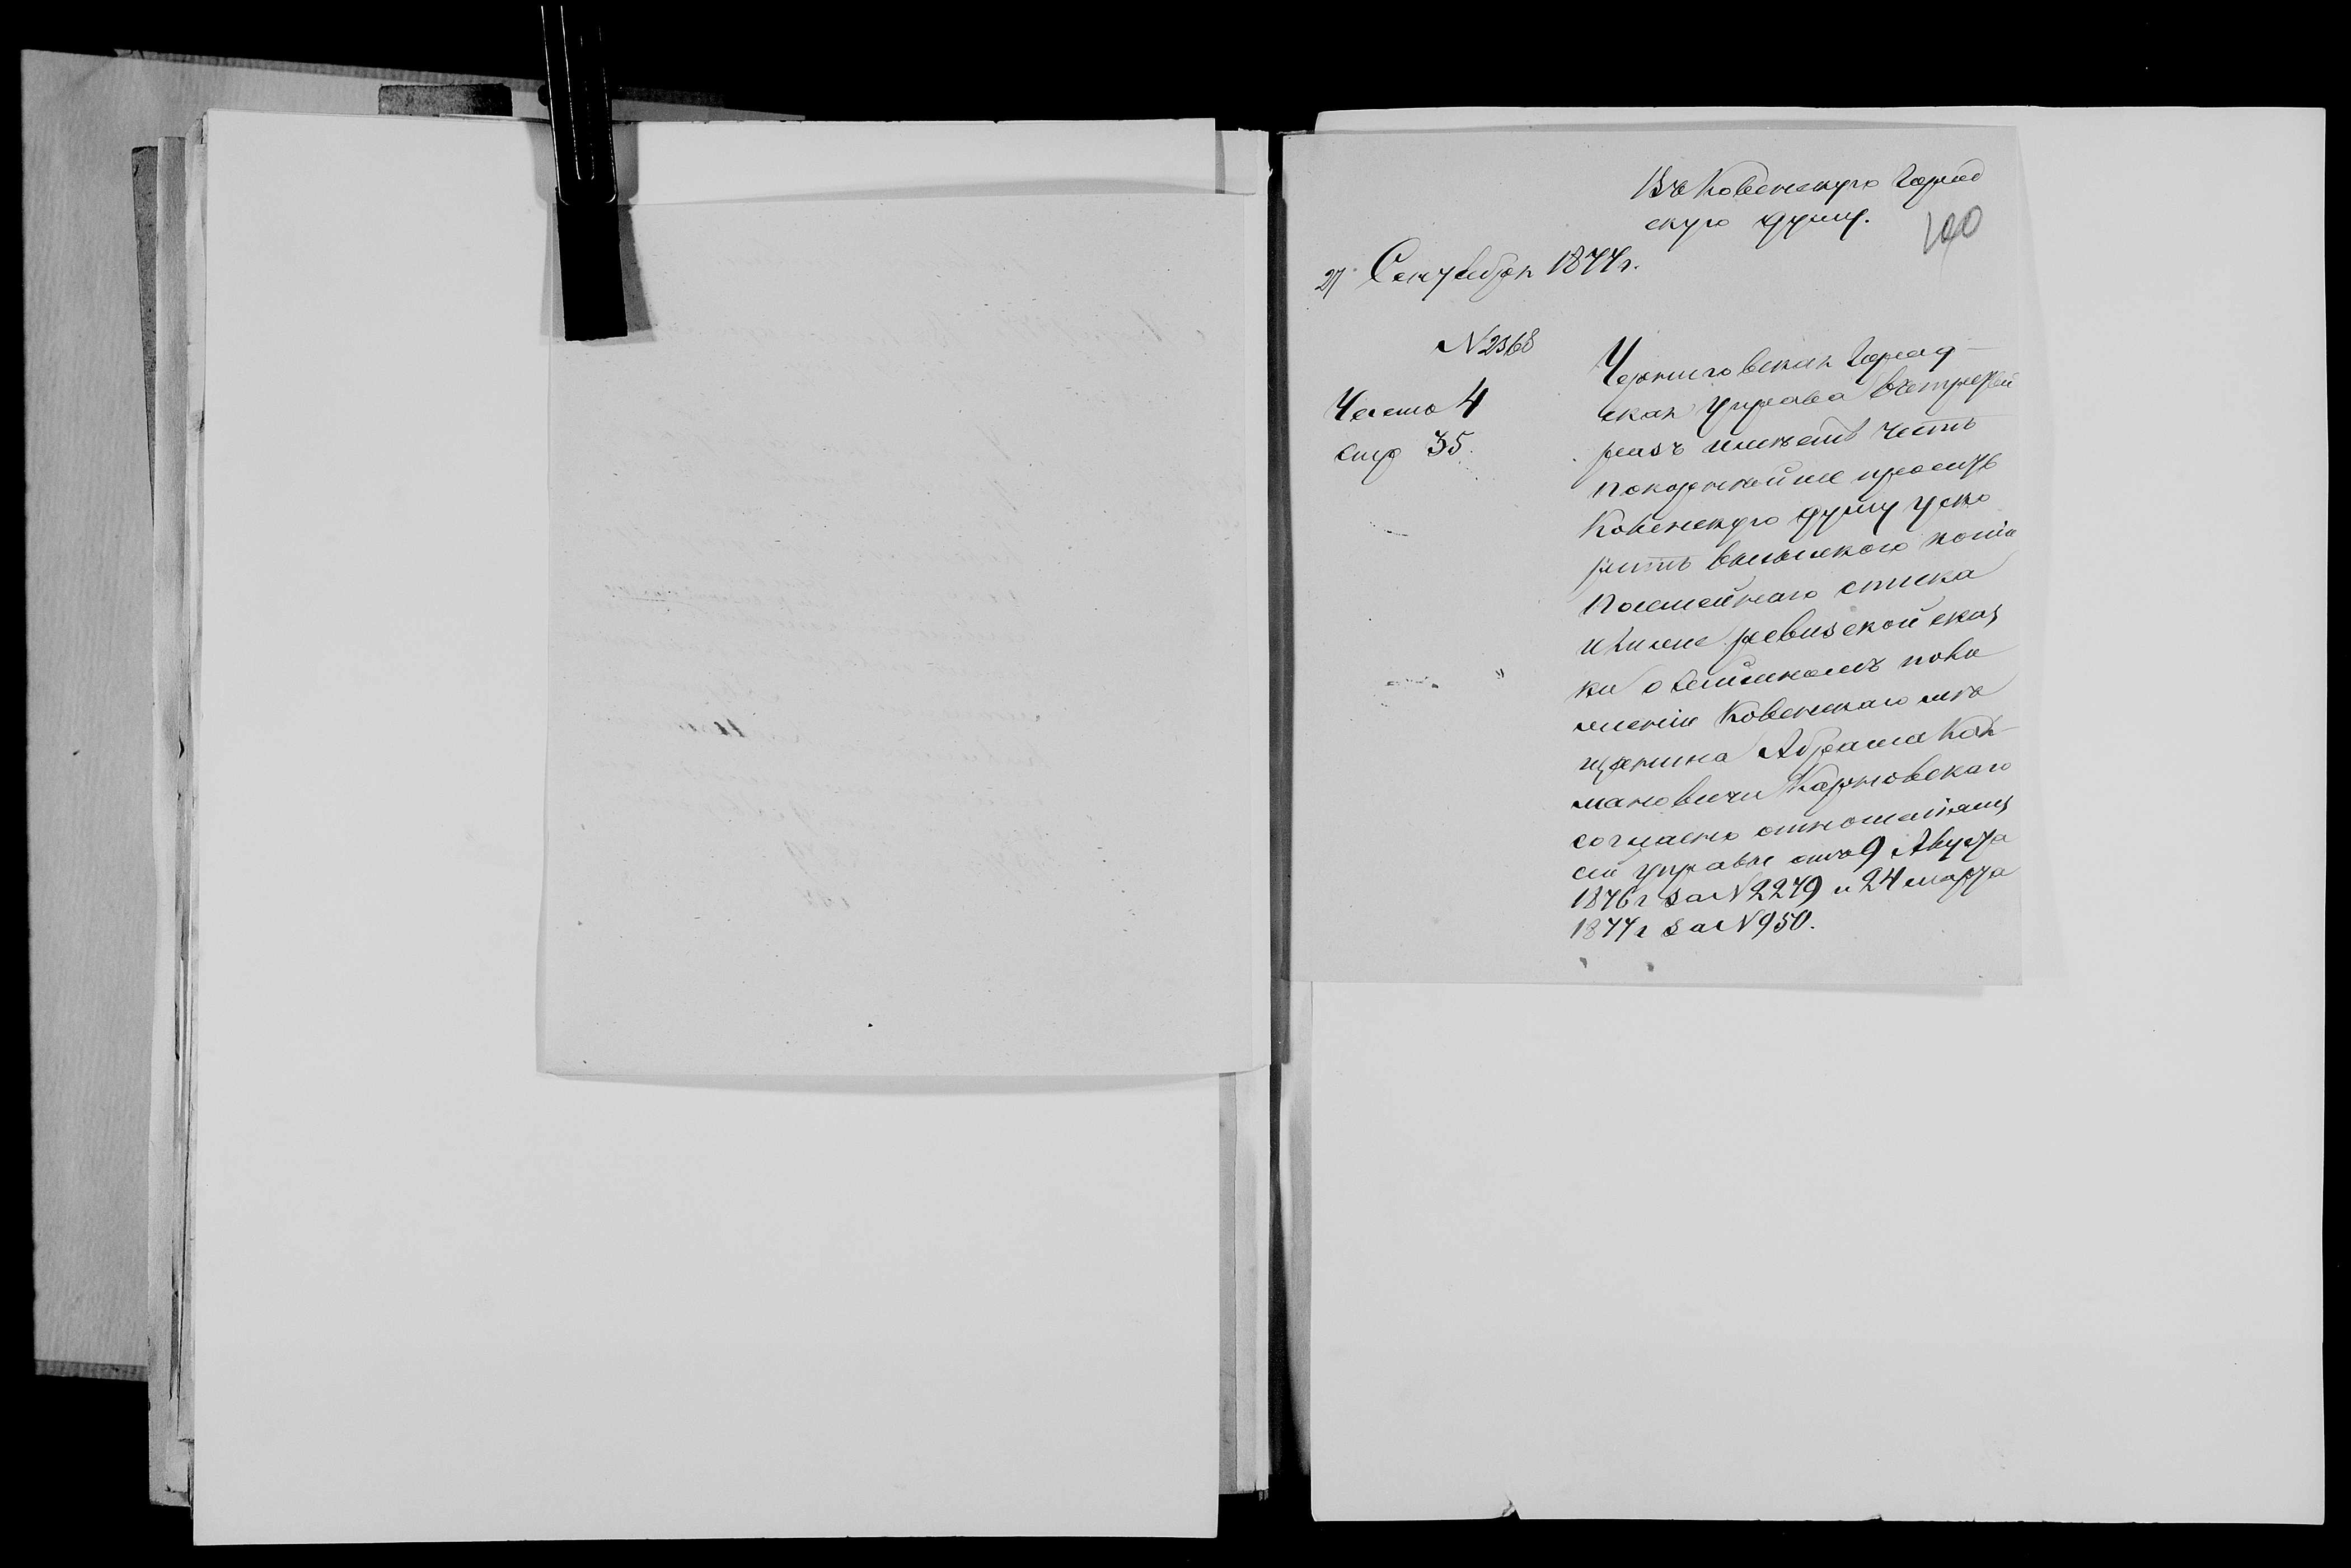 Въ Ковенскую Город
скую Думу.
100
27 Сентября 1877 г.
№ 2368
Часть 4
стр 35.
Черниговская Город-
ская Управа въ третій
разъ имѣетъ честь
покорнѣйше просить
Ковенскую Думу уско
рить высылкою копіи
посемейнаго списка
ревизской сказ
ки о семейномъ поло
женіи Ковенскаго мѣ
щанина Абрама
мановича Карновскаго
согласно отношеніямъ
сей Управы отъ 9 Августа
1876 г за № 2279 и 24 марта
1877 г за № 950.